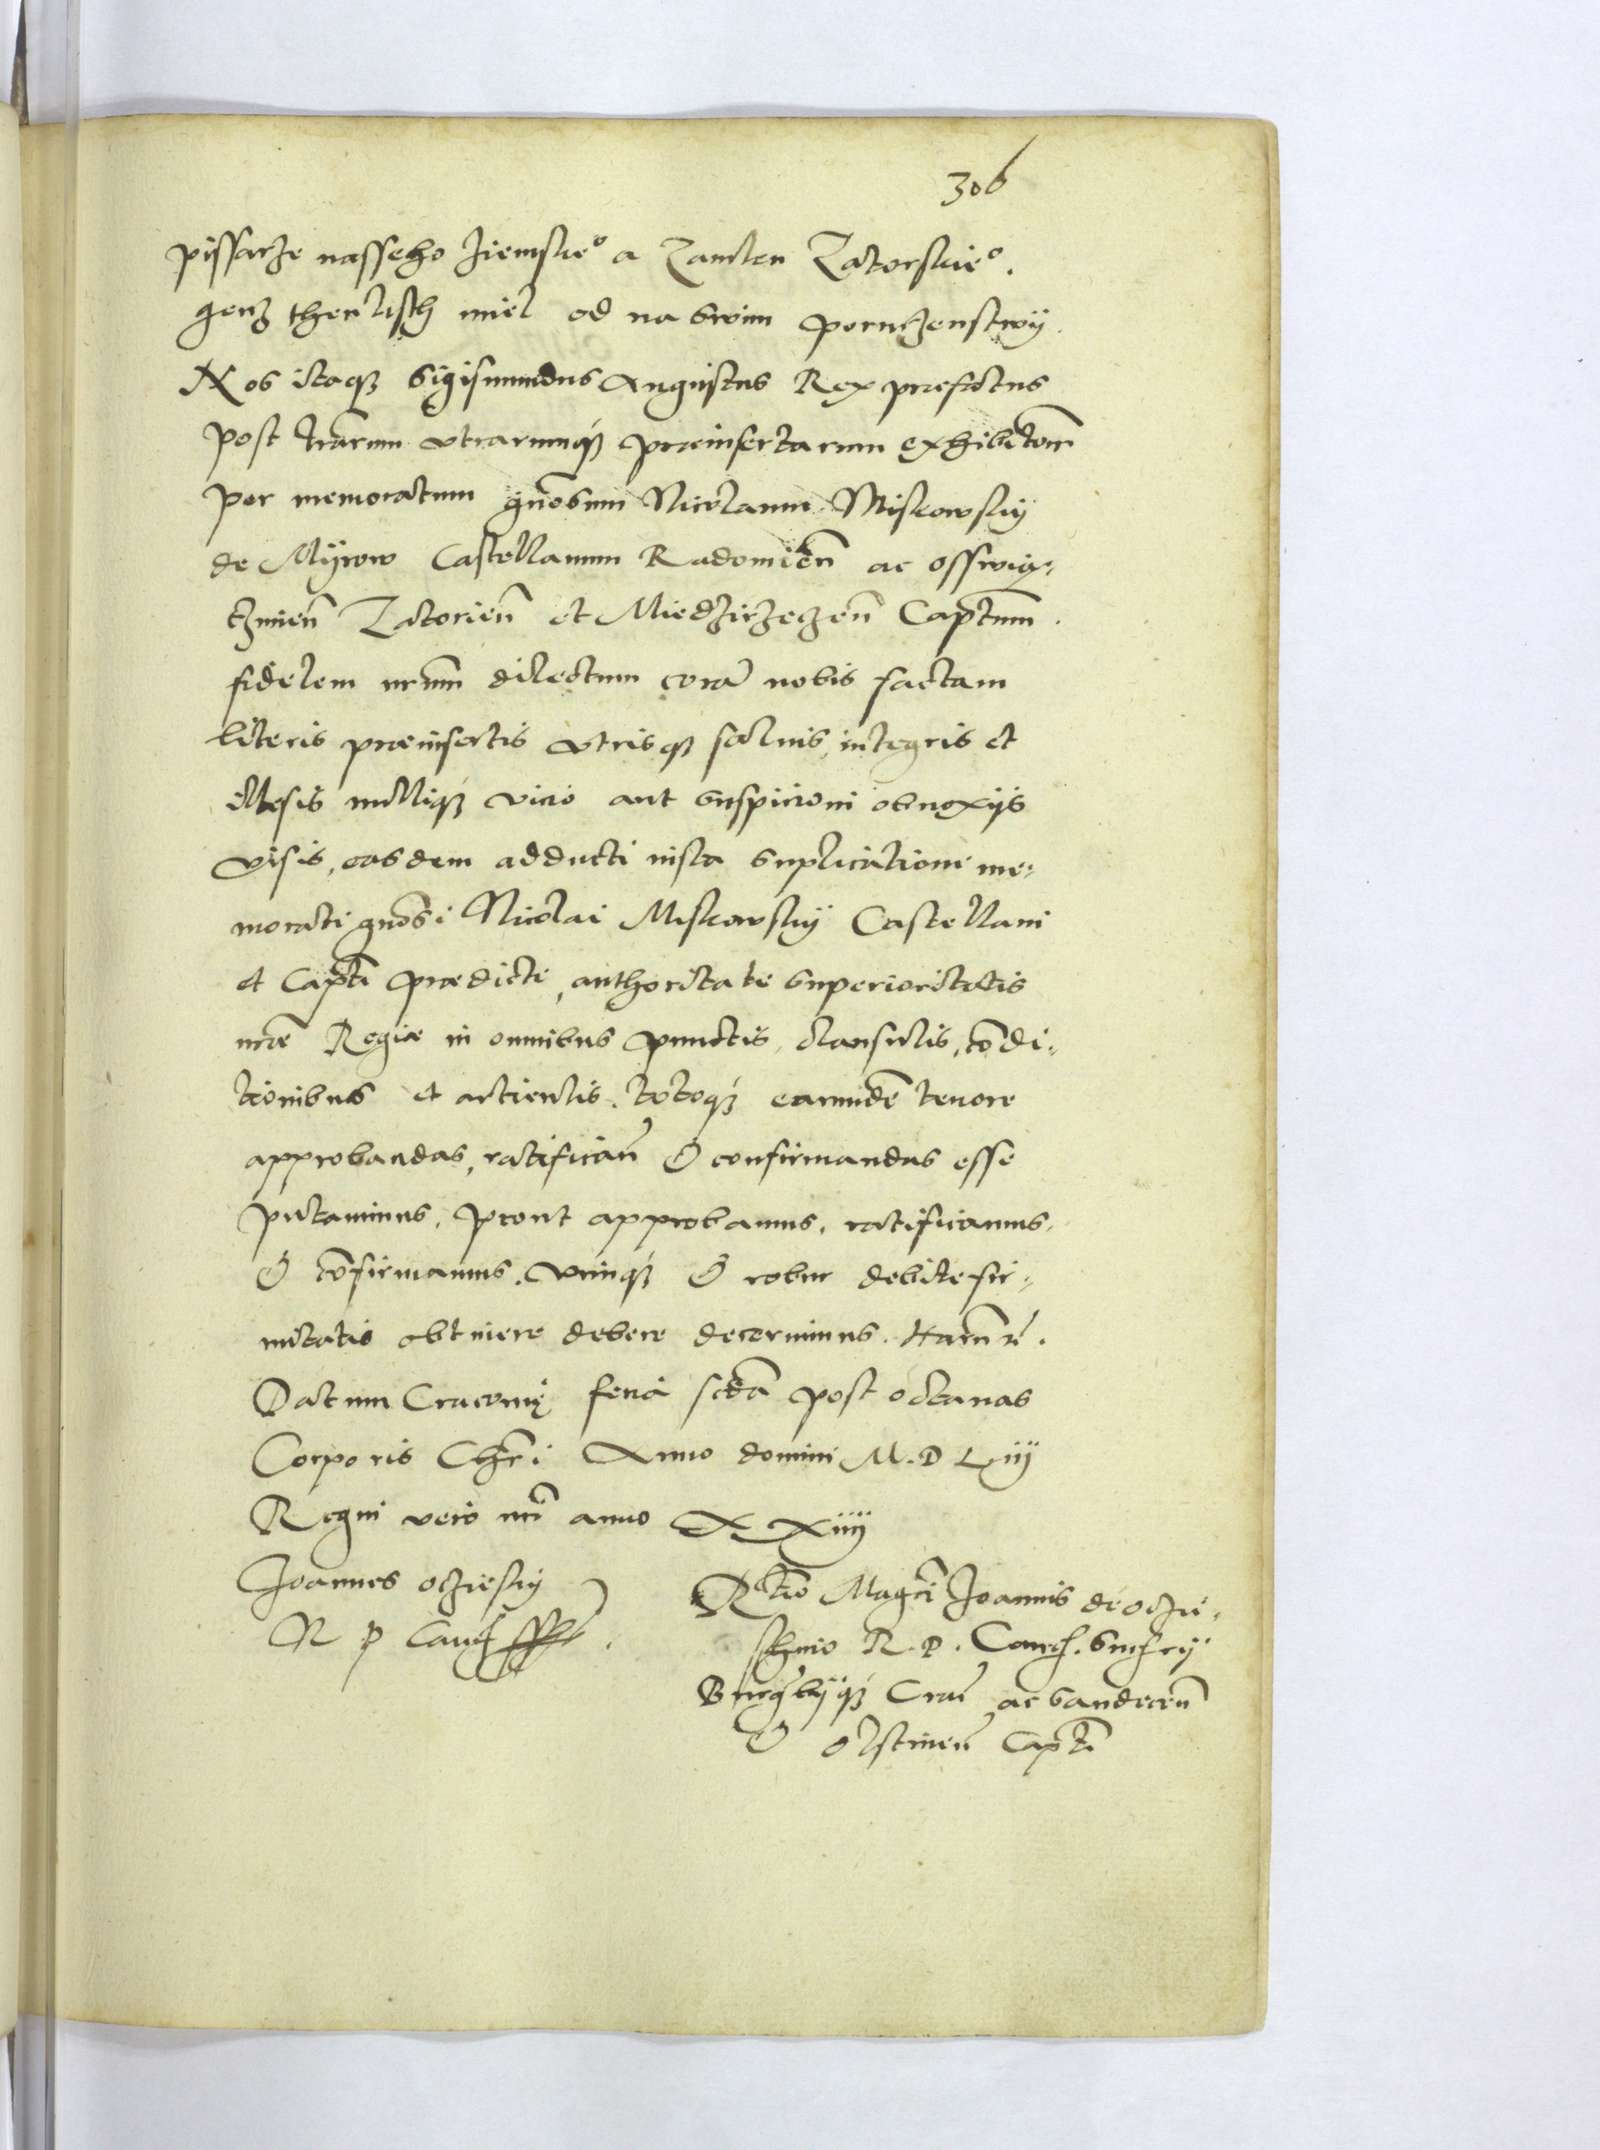 306
pissarze nasseho ziemskie° a Zamku Zatorskie°.
genz then listh miel od nas w swim poruczenstwÿ.
Nos itaq3 Sigismundus Augustus Rex praefatus
post lrarum utrarumq3 praeinsertarum exhibitionem
per memoratum gnosum Nicolaum Miskowskÿ
de Mÿrow Castellanum Radomien ac osswię,
czimien Zatorien et Miedzirzeczen Captum.
fidelem nrum dilectum cora nobis factam
literis praeinsertis utrisq3 saluis, integris et
illesis nulliq3 vicio aut suspicioni obnoxÿs
visis, easdem adducti iusta suplicatione me,
morati gnosi Nicolai Miskowskÿ Castellani
et Capti praedicti, authoritate superioritatis
nrae Regiae in omnibus punctis, clausulis, condi,
tionibus et articulis. totoq3 earumde tenore
approbandas, ratifican & confirmandas esse
putauimus, prout approbamus, ratificamus,
& cofirmamus. vimq3 & robur debite fir,
mitatis obtinere debere decernimus. Harum rˢ.
Datum Cracouię feria scda post octauas
Corporis Chri Anno domini M. D Liiÿ
Regni vero nri anno XXiiiÿ
Joannes oczieskÿ
R P Canc ss.
Rtio Magci Joannis de oczie,
schino R. P. Canc. Supr.
Burgrÿq3 Crac ac Sandecen
& olstinen Capti